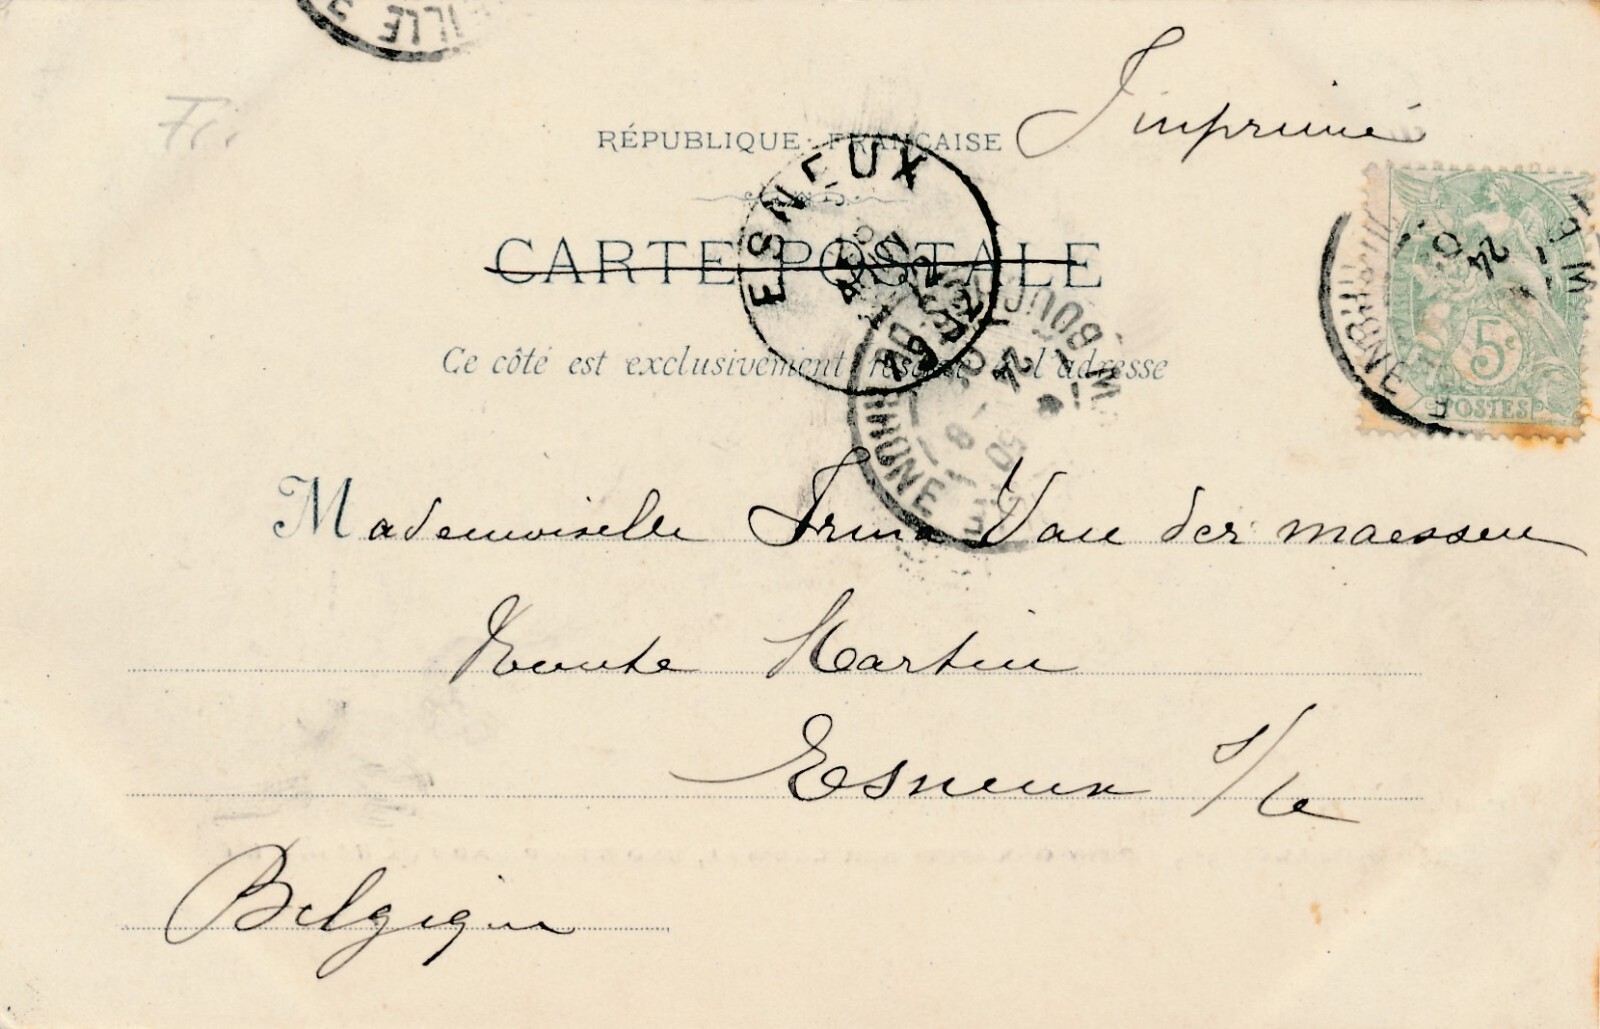 ILLE
Imprimé
RÉPUBLIQUE FRANÇAISE
CARTE POSTALE
ESNEUX
1902
Ce côté est exclusivement réservé à l'adresse
BOUCHES DU RHONE
24
5c
POSTES
Mademoiselle Irma Van der maessen
Route Martin
Esneux s/Ce
Belgique